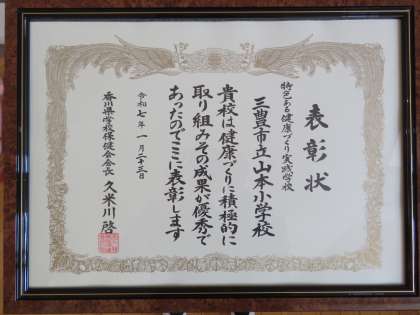 表彰状
特色ある健康づくり実践学校
三豊市立山本小学校
貴校は健康づくりに積極的に
取り組みその成果が優秀で
あったのでここに表彰します
令和七年一月二十三日
香川県学校保健会会長 久米川啓